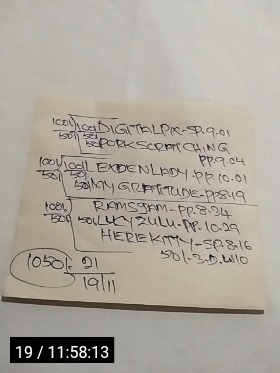 100/. 100/ DIGITALPIX-SP.9.01
50/ 50/ PORKSCRATCHING
50/ PP.9.04
100/. 100/ LEXDENLADY-PP.10.01
50/ 50/ MYGRATITUDE-PP.8.19
100/. RAMSJAM-PP.8.24
50/ 50/ LUCYZULU-PP.10.29
HEREKITTY-SP.8.16
50/.-3.D.W/O
1050/. 21
19/11
19 / 11:58:13